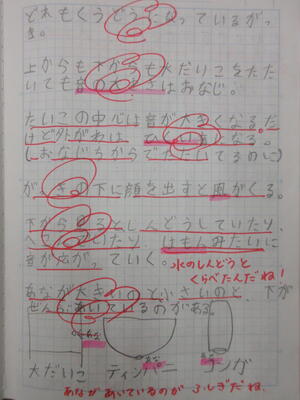 どれもくうどうになっているがっ
き。
上からも下からも水だいこをたた
いても音の大きさはおなじ。
たいこの中心は音が大きくなる。だ
けど外がわは、ひくい音になる。
(おなじちからでたたいてるのに)
がっきの下に顔を出すと風がくる。
下から見るとしんどうしていたり、
いたり はもんみたいに
音が広がっていく。
水のしんどうと
くらべたんだね!
あなが大きいのと小さいのと、下が
ぜんぶあいているのがある。
あな
あな
あな
大だいこ ティンパニー コンガ
あながあいているのが ふしぎだね。